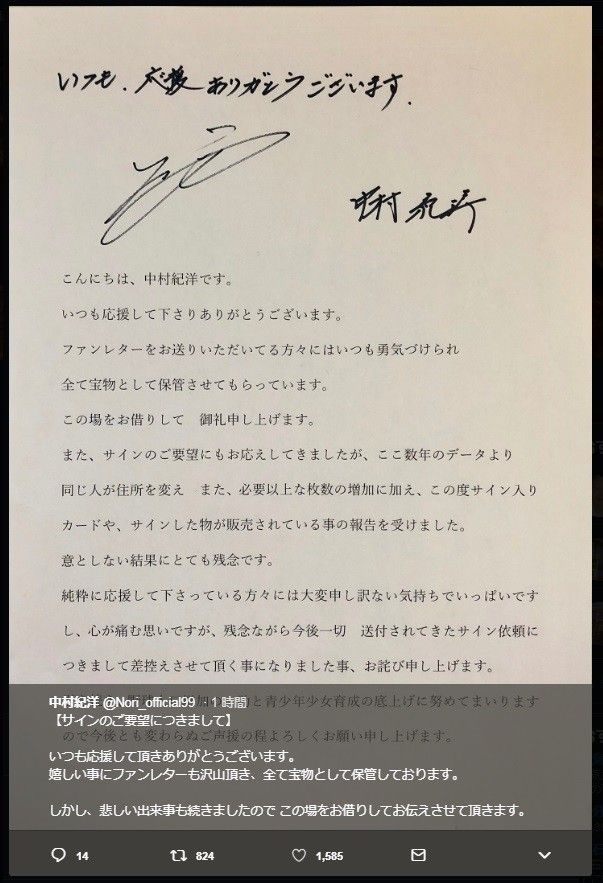 いつも.応援ありがとうございます.
中村紀洋
こんにちは、中村紀洋です。
いつも応援して下さりありがとうございます。
ファンレターをお送りいただいてる方々にはいつも勇気づけられ
全て宝物として保管させてもらっています。
この場をお借りして　御礼申し上げます。
また、サインのご要望にもお応えしてきましたが、ここ数年のデータより
同じ人が住所を変え　また、必要以上な枚数の増加に加え、この度サイン入り
カードや、サインした物が販売されている事の報告を受けました。
意としない結果にとても残念です。
純粋に応援して下さっている方々には大変申し訳ない気持ちでいっぱいです
し、心が痛む思いですが、残念ながら今後一切　送付されてきたサイン依頼に
つきまして差控えさせて頂く事になりました事、お詫び申し上げます。
と青少年少女育成の底上げに努めてまいります
ので今後とも変わらぬご声援の程よろしくお願い申し上げます。
中村紀洋 @Nori_official99 1 時間
【サインのご要望につきまして】
いつも応援して頂きありがとうございます。
嬉しい事にファンレターも沢山頂き、全て宝物として保管しております。
しかし、悲しい出来事も続きましたので この場をお借りしてお伝えさせて頂きます。
14 824 1,585